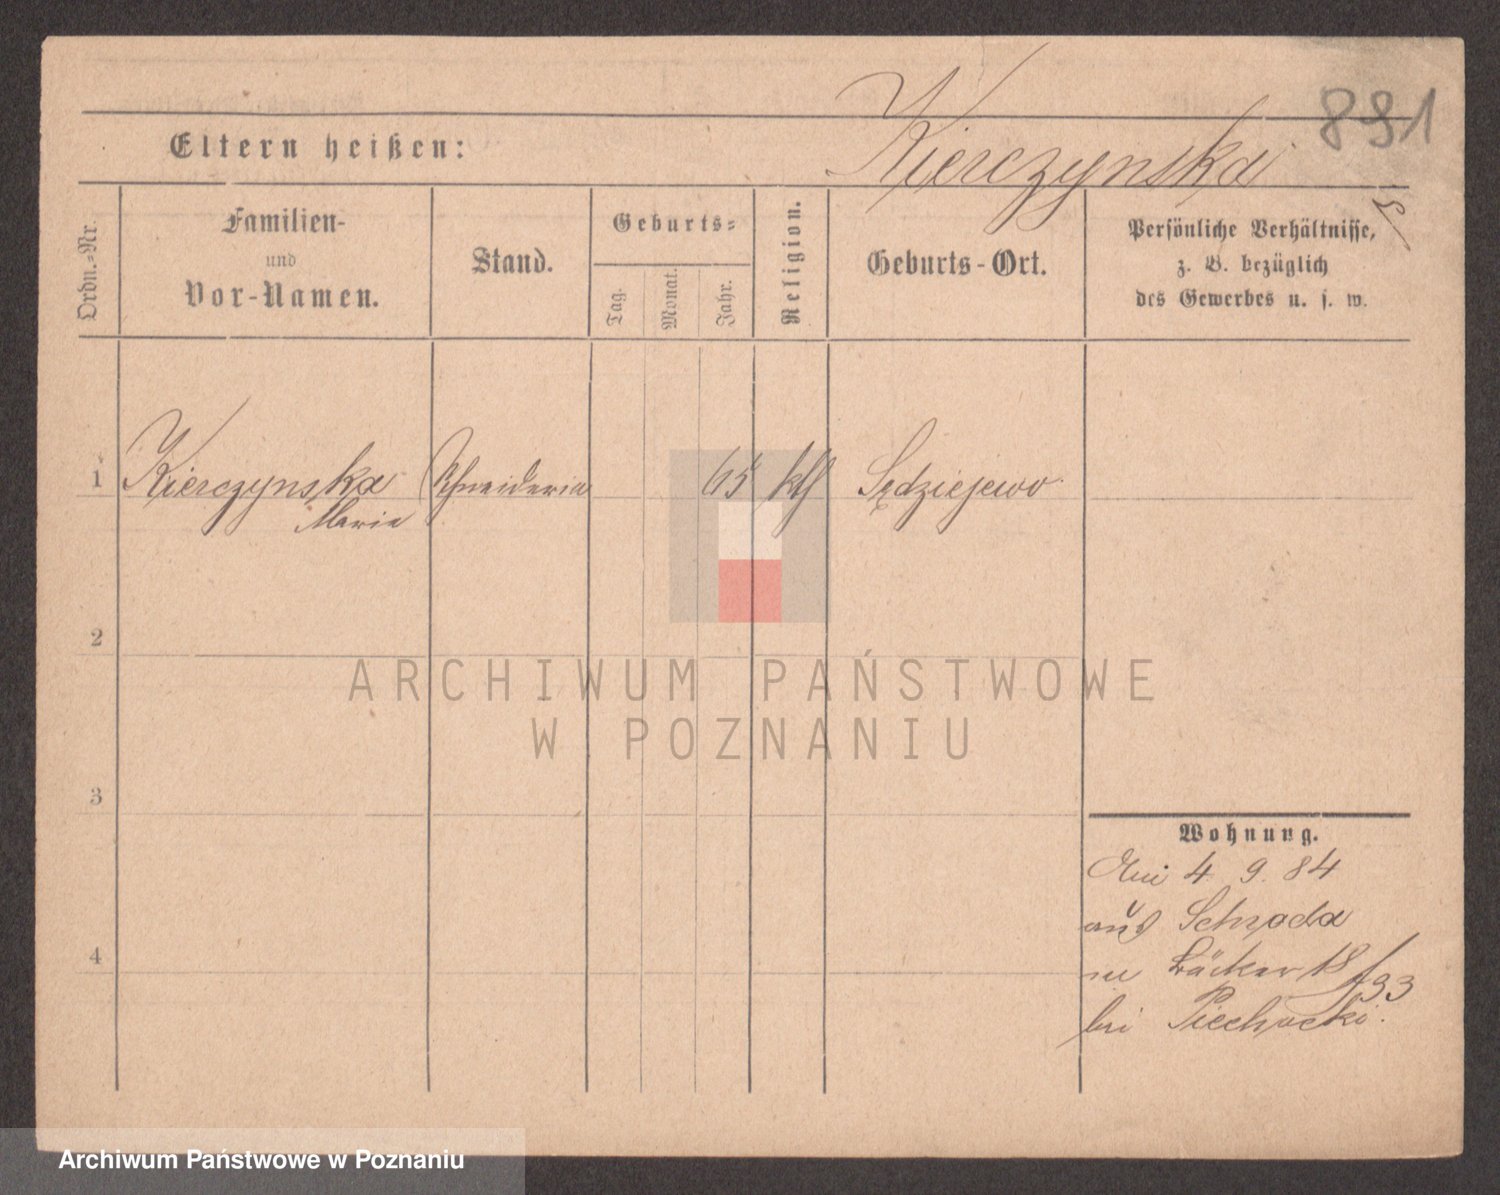 Kierczynska
891
Eltern heißen:
Ordn.-Nr.
Familien-
und
Vor-Namen.
Stand.
Geburts-
Tag.
Monat.
Jahr.
Religion.
Geburts-Ort.
Persönliche Verhältnisse,
z. B. bezüglich
des Gewerbes u. s. w.
1 Kierczynska Schneiderin 65 kth Sędziejewo
Marie
2
ARCHIWUM PAŃSTWOWE
W POZNANIU
3
Wohnung.
4 9. 84
aus Schroda
4
Bäcker 18/93
bei Piechocki.
Archiwum Państwowe w Poznaniu